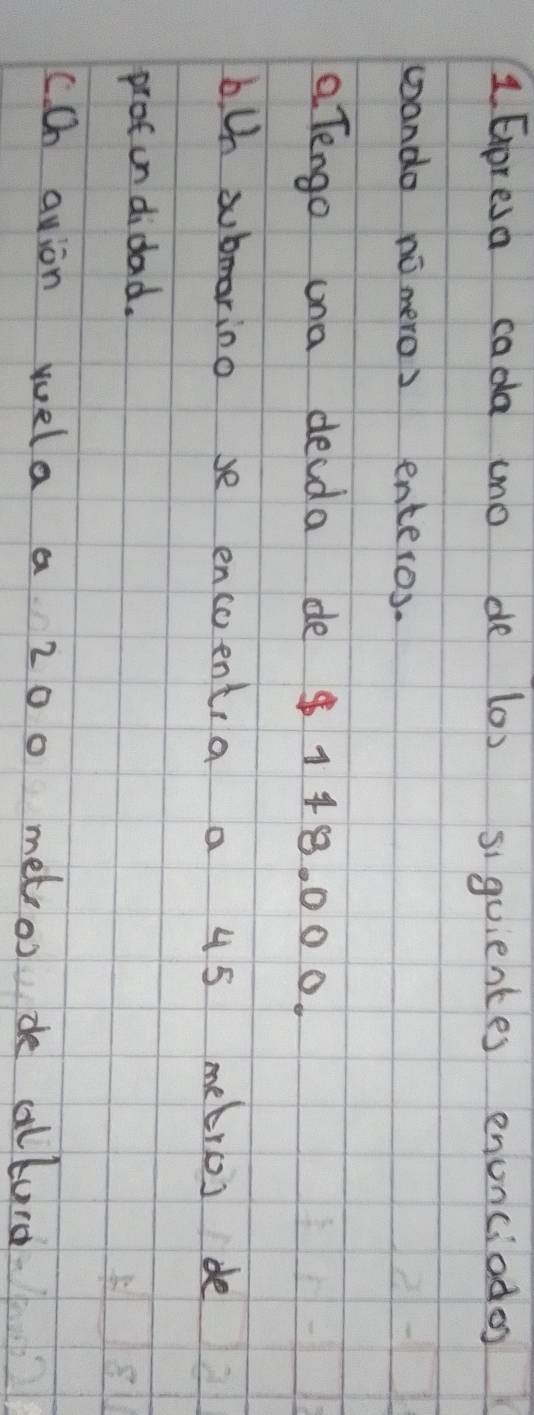 1. Expresa cada uno de los siguientes enunciados
usando números enteros.
a. Tengo una deuda de $ 118.000.
b. Un submarino se encuentra a 45 metros de
profundidad.
c. Un avión vuela a 200 metros de altura